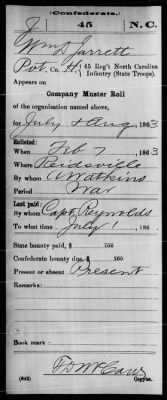 (Confederate.)
J 45 N.C.
Wm D Jarrett
Pvt, Co. H, 45 Reg't North Carolina
Infantry (State Troops).
Appears on
Company Muster Roll
of the organization named above,
for July & Aug, 1863
Enlisted:
When Feb 7, 1863
Where Reidsville
By whom A Watkins
Period War
Last paid:
By whom Capt. Reynolds
To what time July 1, 186
State bounty paid, $ 100
Confederate bounty due, $ 100
Present or absent Present
Remarks:
Book mark:
(642) Copyist.